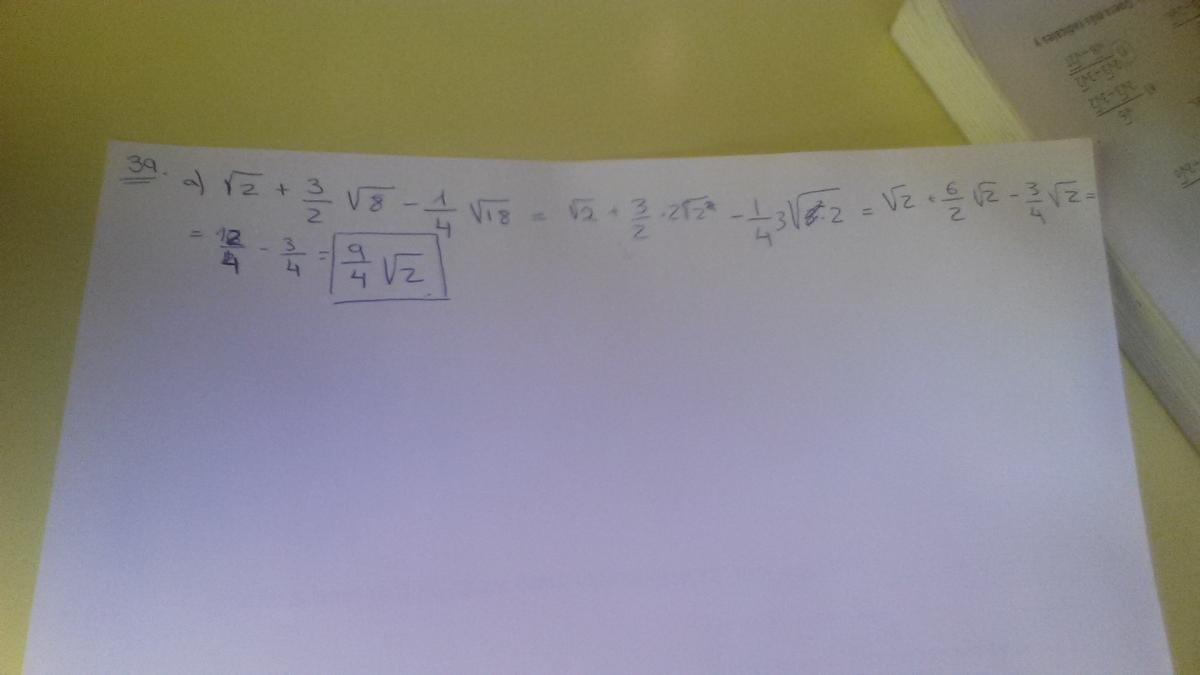 39. a) √2 + 3/2 √8 - 1/4 √18 = √2 + 3/2 · 2√2 - 1/4 3√3²·2 = √2 + 6/2 √2 - 3/4 √2 =
= 12/4 - 3/4 = 9/4 √2